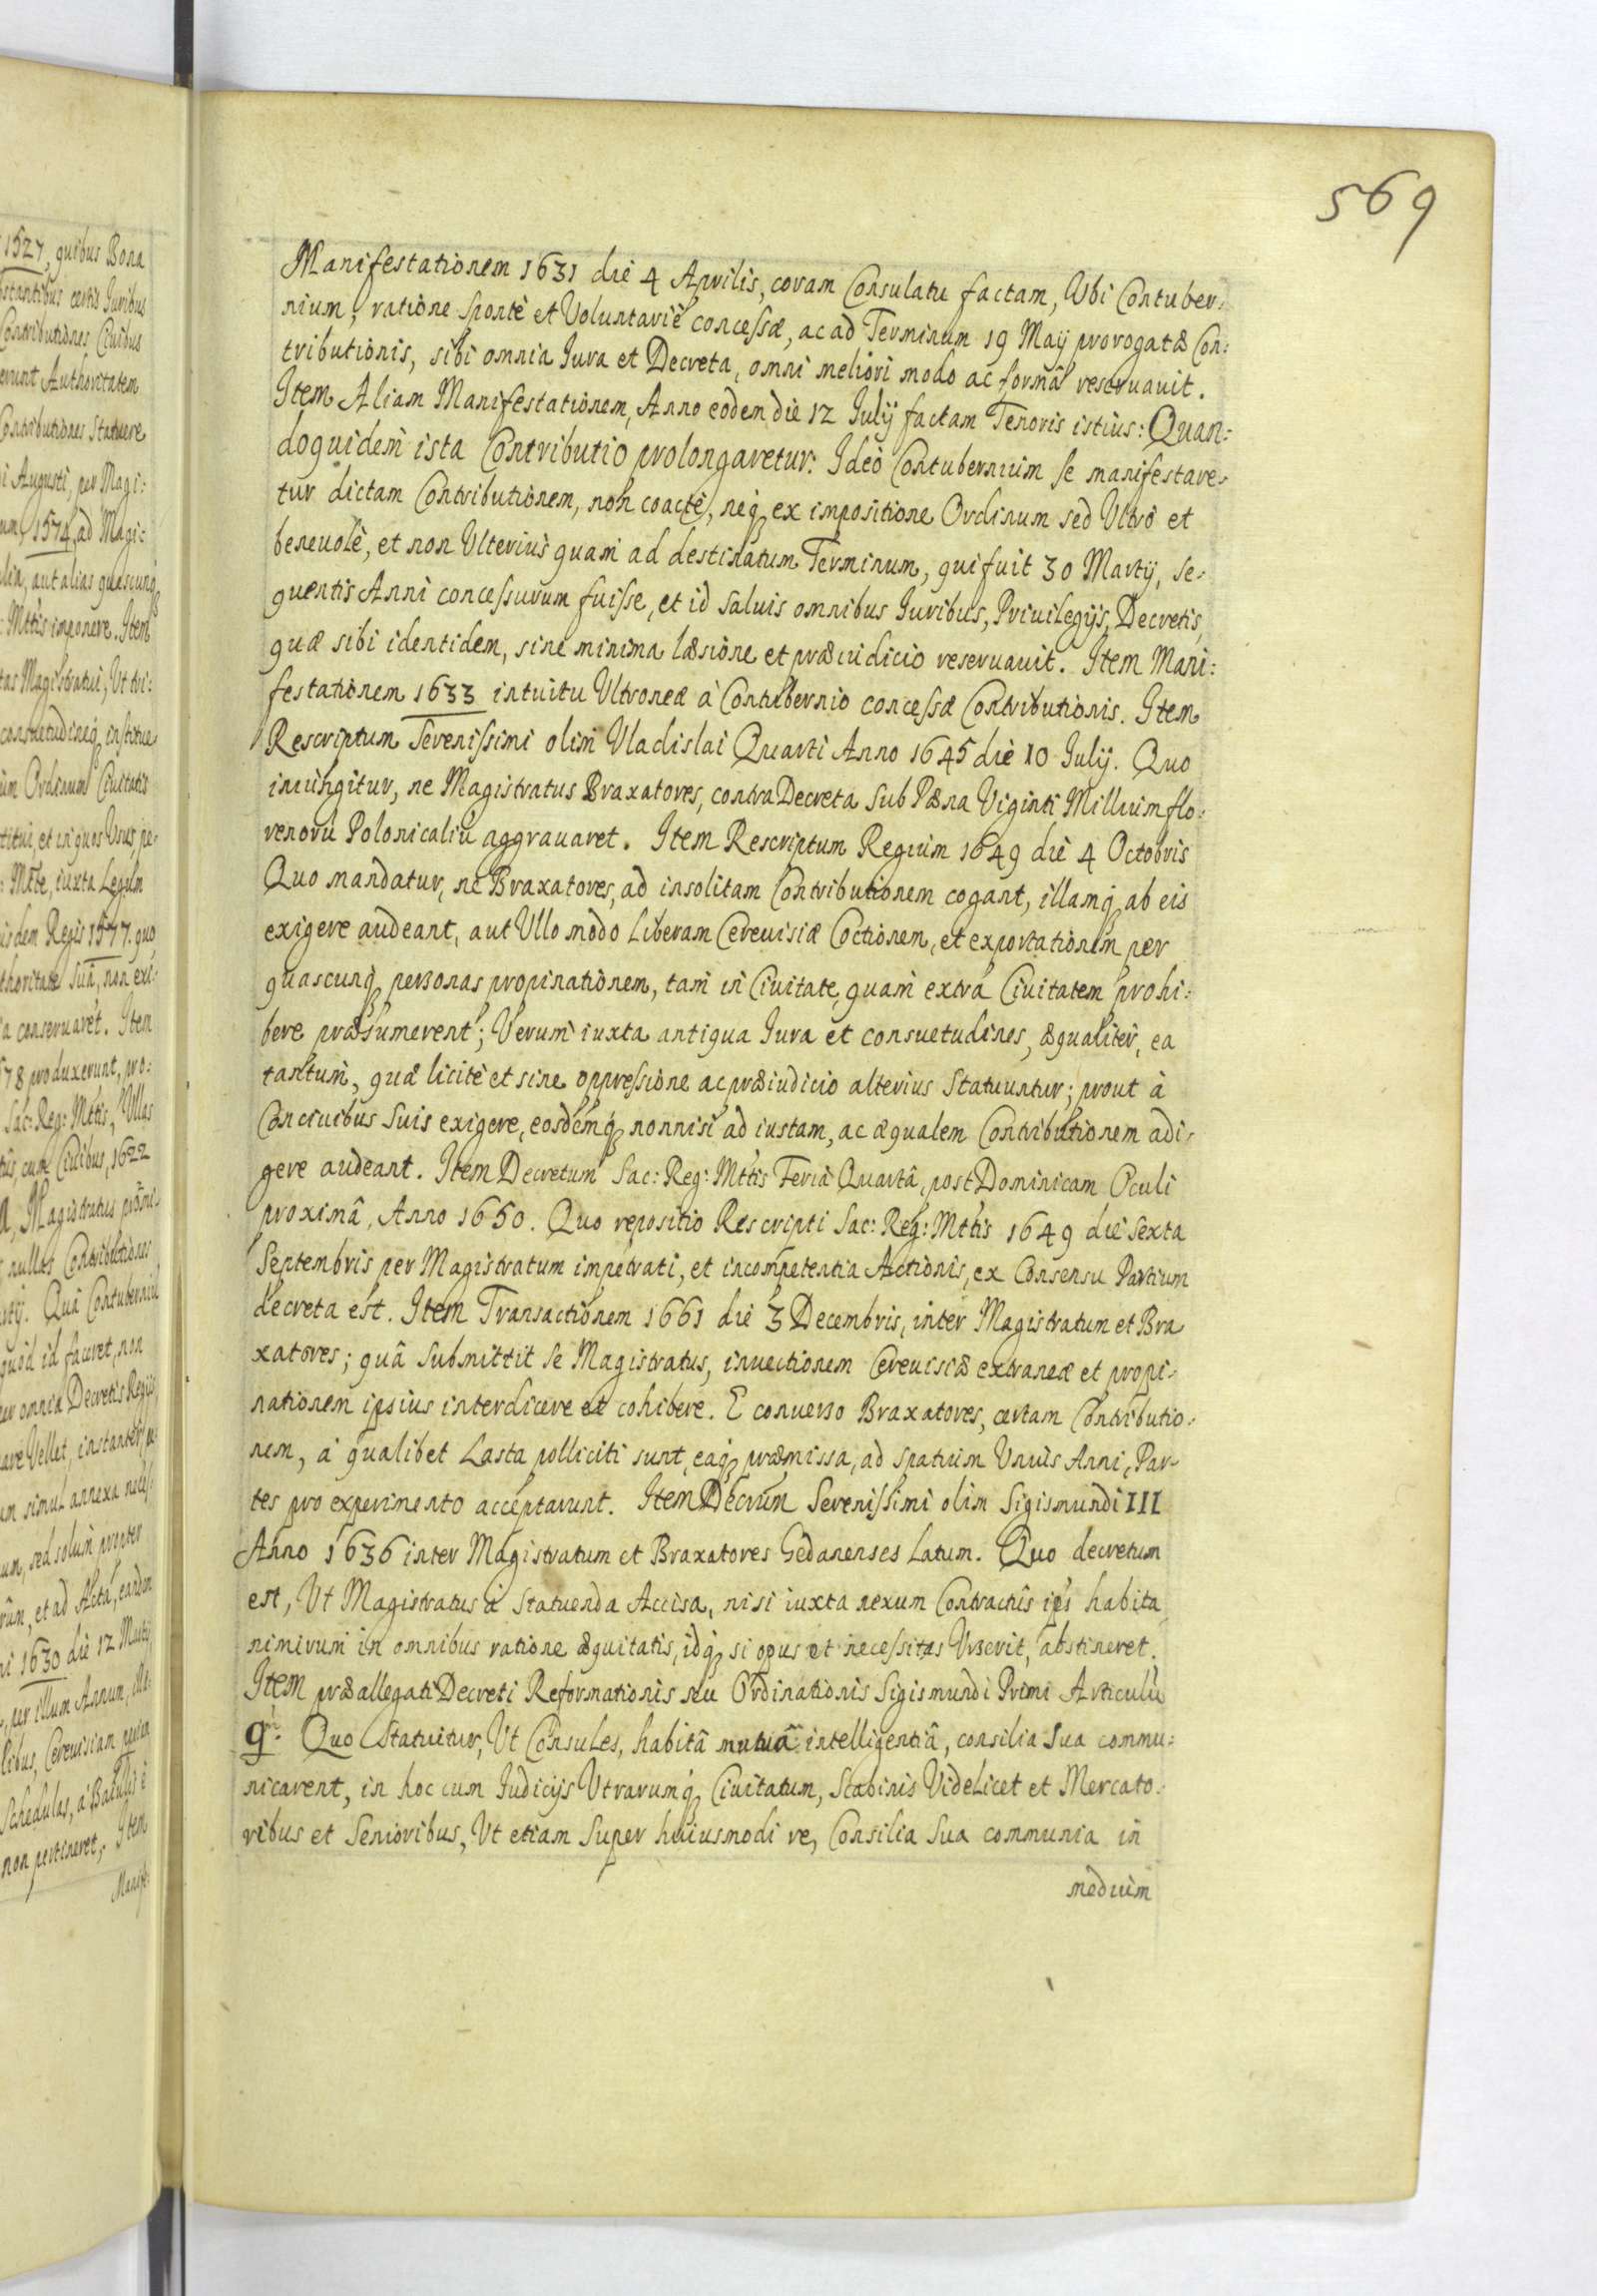 569
Manifestationem 1631 die 4 Aprilis, coram Consulatu factam, Ubi Contuber:
nium, ratione sponte et Voluntariè concessæ, ac ad Terminum 19 Maÿ prorogatæ Con:
tributionis, sibi omnia Iura et Decreta, omni meliori modo ac formâ reseruauit.
Item Aliam Manifestationem, Anno eodem die 12 Julÿ factam Tenoris istius: Quan:
doquidem ista Contributio prolongaretur: Ideò Contubernium se manifestare:
tur dictam Contributionem, non coactè, neq ex impositione Ordinum sed Ultrò et
beneuolè, et non Ulterius quam ad destinatum Terminum, qui fuit 30 Martÿ, se:
quentis Anni concessurum fuisse, et id saluis omnibus Iuribus, Priuilegÿs, Decretis,
quæ sibi identidem, sine minima læsione et præiudicio reseruauit. Item Mani:
festationem 1633 intuitu Ultroneæ à Contubernio concessæ Contributionis. Item
Rescriptum Serenissimi olim Vladislai Quarti Anno 1645 die 10 Julÿ. Quo
iniungitur, ne Magistratus Braxatores, contra Decreta sub Pæna Viginti Millium flo:
renorū Polonicaliū aggrauaret. Item Rescriptum Regium 1649 die 4 Octobris
Quo mandatur, ne Braxatores, ad insolitam Contributionem cogant, illamq ab eis
exigere audeant, aut Ullo modo Liberam Cereuisiæ Coctionem, et exportationem per
quascunq personas propinationem, tam in Ciuitate, quam extra Ciuitatem prohi:
bere præsumerent; Verum iuxta antiqua Iura et consuetudines, æqualiter, ea
tantum, quæ licitè et sine oppressione ac præiudicio alterius statuuntur; prout à
Conciuibus suis exigere, eosdemq nonnisi ad iustam, ac æqualem Contributionem adi:
gere audeant. Item Decretum Sac: Reg: Mttis Feriâ Quartâ, post Dominicam Oculi
proximâ, Anno 1650. Quo repositio Rescripti Sac: Reg: Mttis 1649 die sexta
Septembris per Magistratum impetrati, et incompetentia Actionis, ex Consensu Partium
decreta est. Item Transactionem 1661 die 3 Decembris, inter Magistratum et Bra
xatores; quâ submittit se Magistratus, inuectionem Cereuisiæ extraneæ et propi:
nationem ipsius interdicere et cohibere. E conuerso Braxatores, certam Contributio:
nem, à qualibet Lasta polliciti sunt, eaq præmissa, ad spatium Unius Anni, Par:
tes pro experimento acceptarunt. Item Decrum Serenissimi olim Sigismundi III
Anno 1636 inter Magistratum et Braxatores Gedanenses Latum. Quo decretum
est, Ut Magistratus à statuenda Accisa, nisi iuxta nexum Contractûs ips habita
nimirum in omnibus ratione æquitatis, idq si opus et necessitas Urserit, abstineret.
Item præallegati Decreti Reformationis seu Ordinationis Sigismundi Primi Articulū
9. Quo statuitur, Ut Consules, habitâ mutuâ intelligentiâ, consilia sua commu:
nicarent, in hoc cum Judicÿs Utrarumq Ciuitatum, Scabinis Videlicet et Mercato:
ribus et Senioribus, Ut etiam super huiusmodi re, Consilia sua communia in
medium